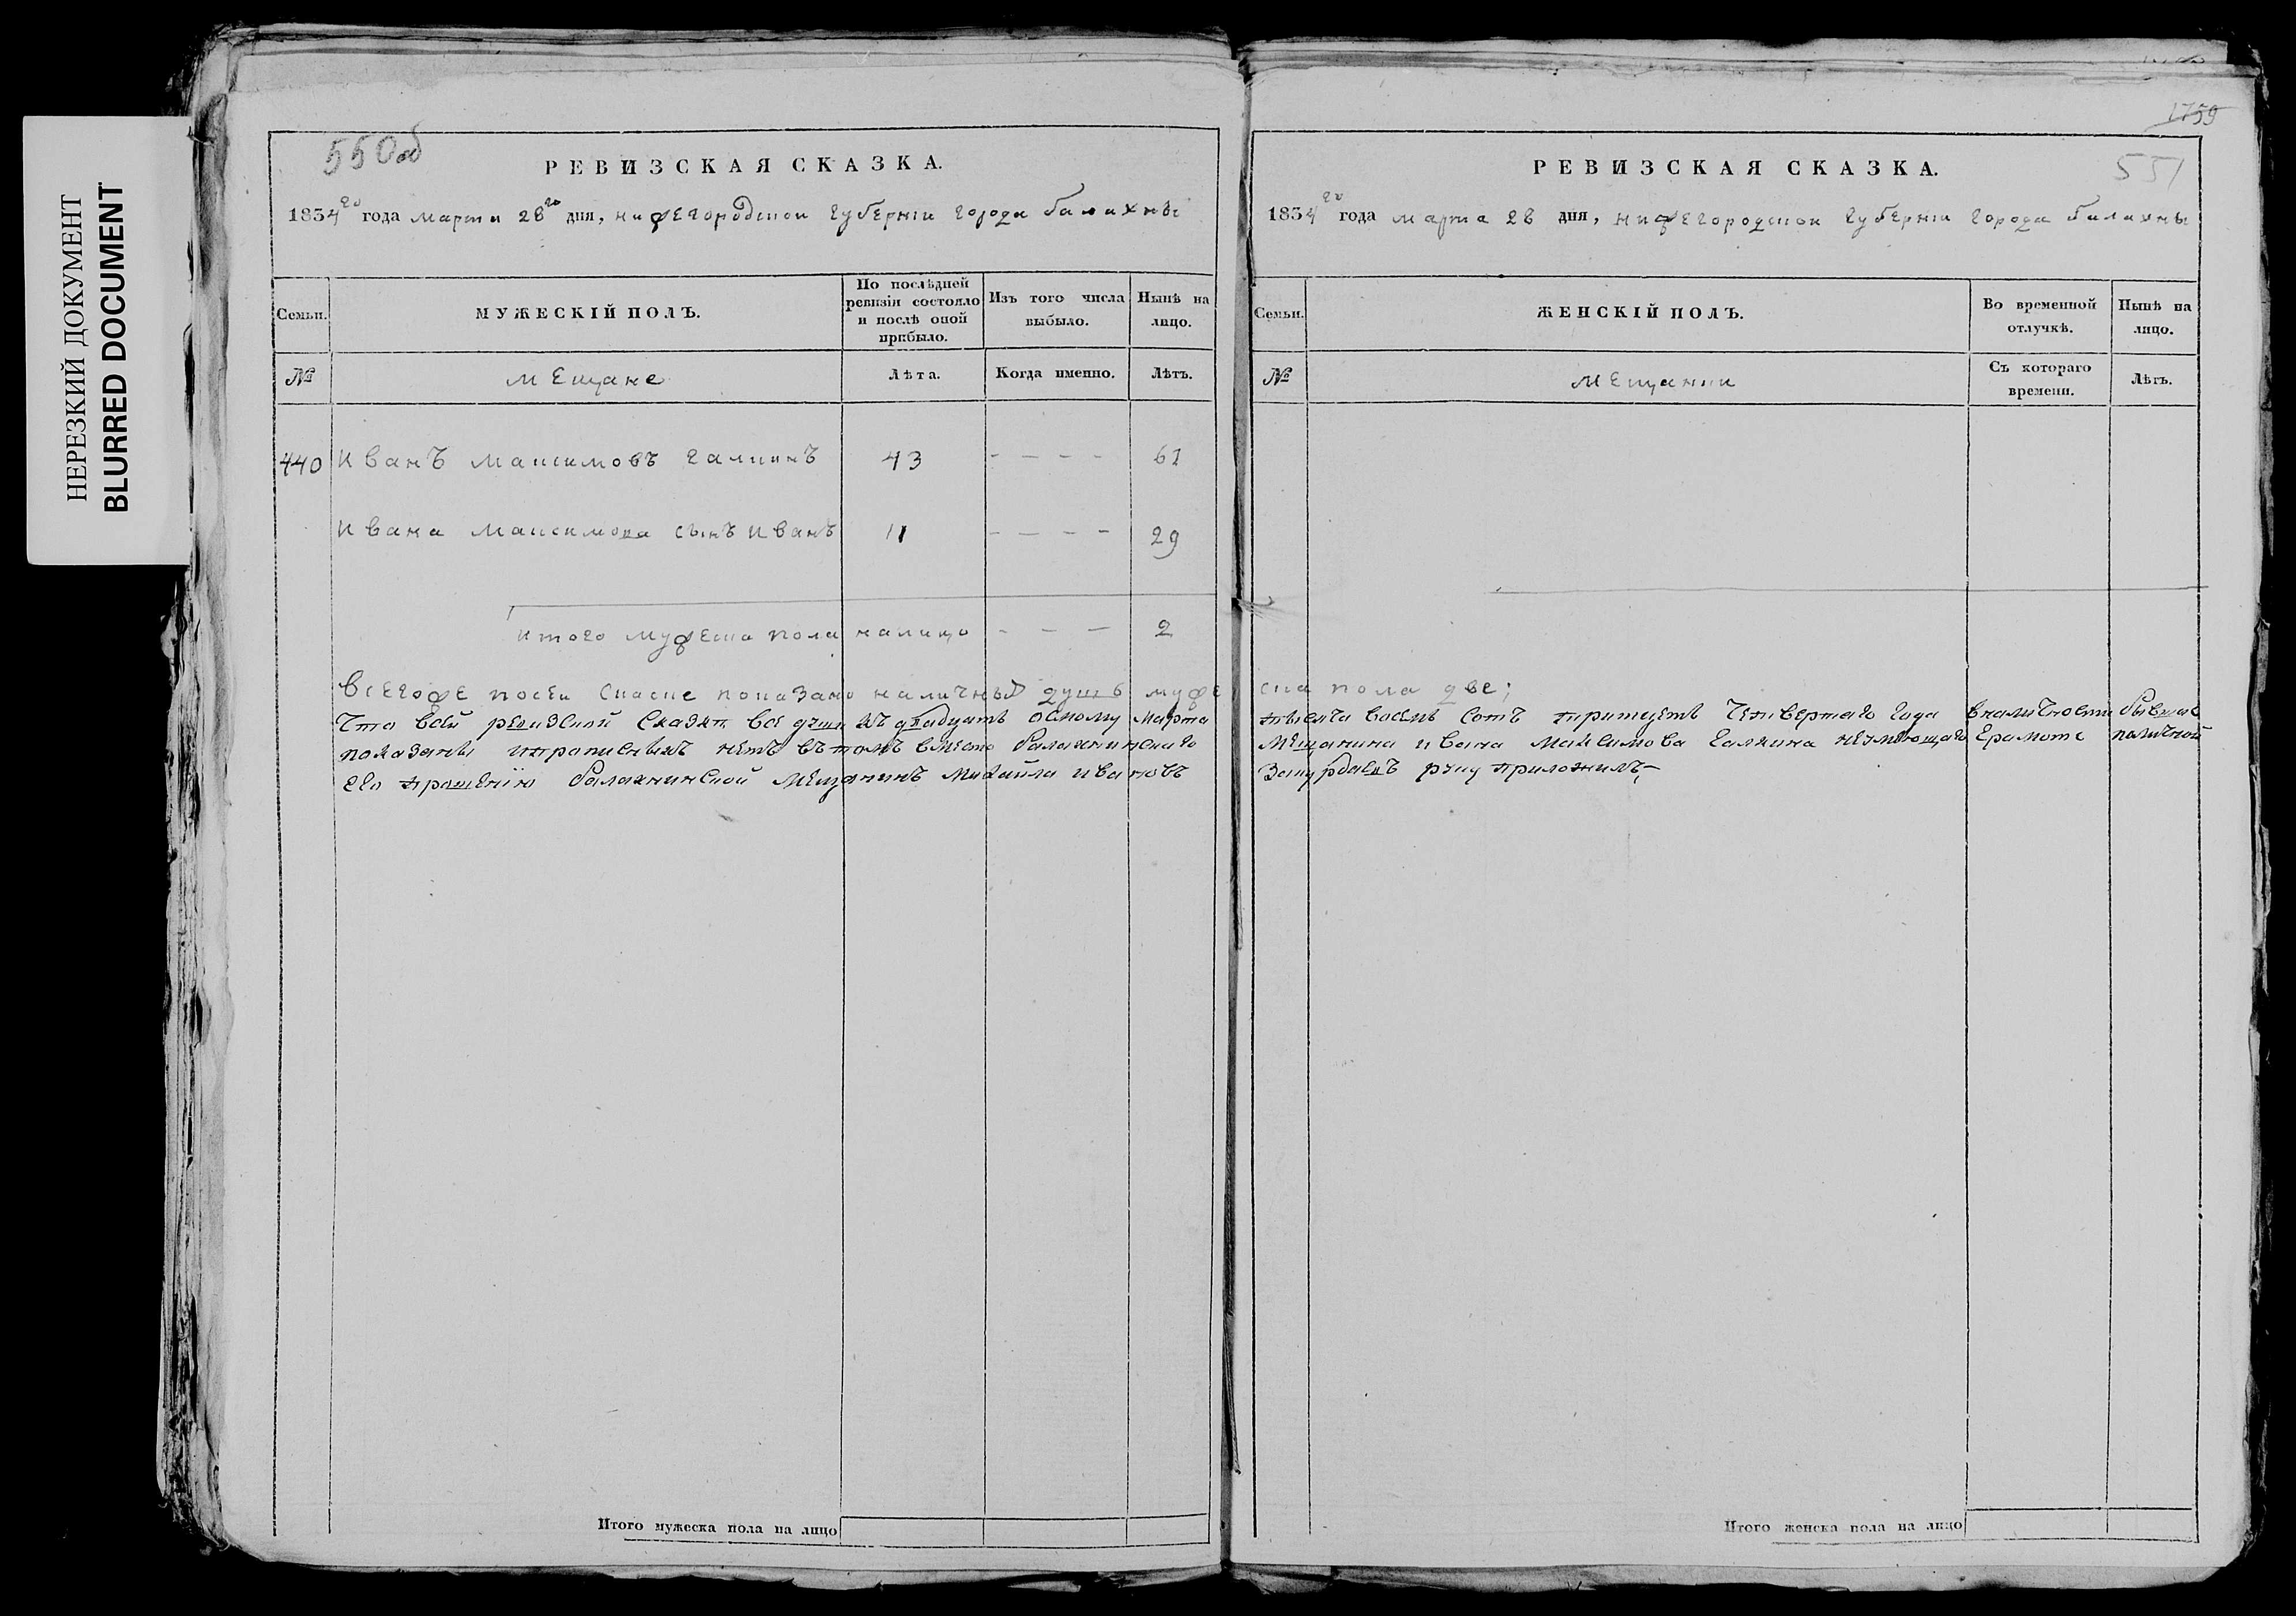 НЕРЕЗКИЙ ДОКУМЕНТ
BLURRED DOCUMENT
550об
РЕВИЗСКАЯ СКАЗКА.
1834го года марта 28го дня, нижегородской губернии города балахны
Семьи.
МУЖЕСКІЙ ПОЛЪ.
По послѣдней ревизіи состояло и послѣ оной прибыло.
Изъ того числа выбыло.
Нынѣ на лицо.
№
мещане
Лѣта.
Когда именно.
Лѣтъ.
440 Иванъ Максимовъ галкинъ 43 - - - - 61
Ивана Максимова сынъ Иванъ 11 - - - - 29
итого мужеска пола налицо - - - 2
Всегоже посеи скаске показано наличных душъ муже
Что всей ревизской сказке все души къ двадцать осмому марта
показаны ипрописныхъ нетъ втомъ вместо балахнинскаго
его прошению балахнинской мещанинъ михайла ивановъ
Итого мужеска пола на лицо
1759
551
РЕВИЗСКАЯ СКАЗКА.
1834го года марта 28 дня, нижегородской губернии города балахны
Семьи.
ЖЕНСКІЙ ПОЛЪ.
Во временной отлучкѣ.
Нынѣ на лицо.
№
мещанки
Съ котораго времени.
Лѣтъ.
ска пола две;
тысяча восемь сотъ тритцеть четвертаго года вналичности бывшие
мещанина ивана максимова галкина неумеющаго грамоте поличной
руку приложилъ
Итого женска пола на лицо